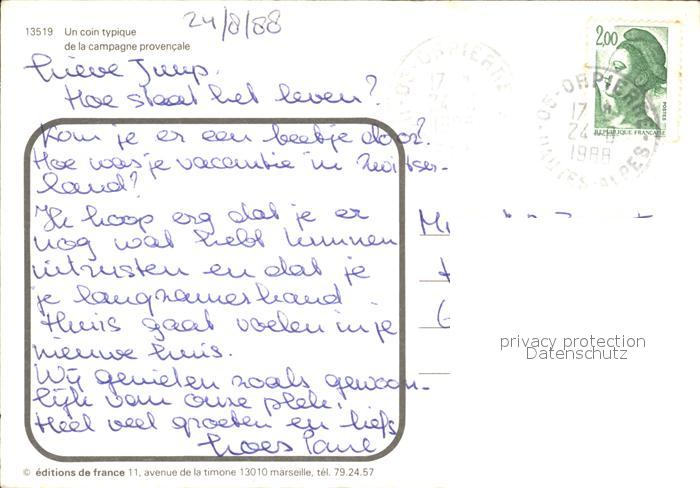 24/8/88
13519 Un coin typique
de la campagne provençale
Lieve Juup,
Hoe staat het leven?
Kom je er een beetje door?
Hoe was je vacantie in Zwitser-
land?
Ik hoop erg dat je er
nog wat hebt kunnen
uitrusten en dat je
je langzamerhand
thuis gaat voelen in je
nieuwe huis.
Wij genieten zoals gewoon-
lijk van onze plek.
Heel veel groeten en liefs
2,00
POSTES
REPUBLIQUE FRANÇAISE
05-ORPIERRE
17 H
24-8
1988
HAUTES-ALPES
privacy protection
Datenschutz
© éditions de france 11, avenue de la timone 13010 marseille, tél. 79.24.57